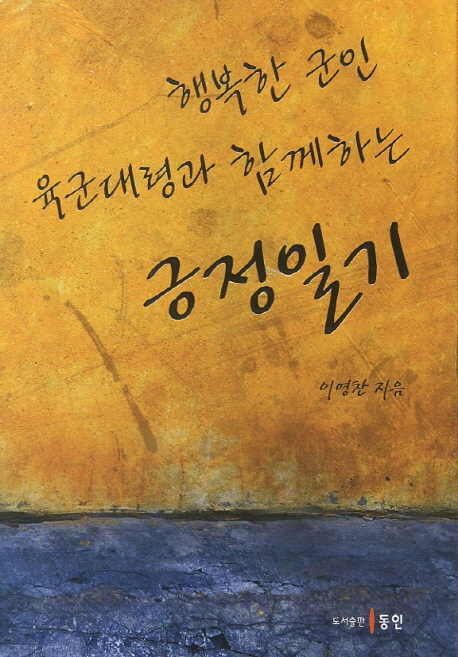 행복한 군인
육군대령과 함께하는
긍정일기
이영찬 지음
도서출판 동인